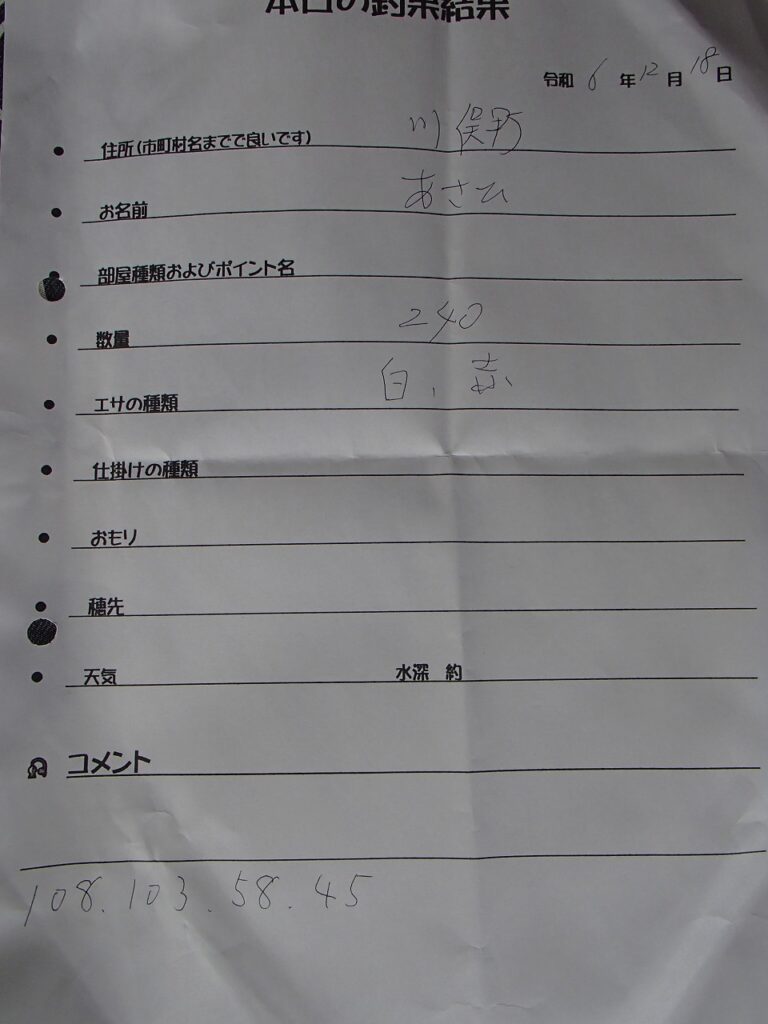 本日の釣果結果
令和 6 年 12 月 18 日
住所(市町村名までで良いです) 川俣町
お名前 あさひ
部屋種類およびポイント名
数量 240
エサの種類 白、赤
仕掛けの種類
おもり
穂先
天気 水深 約
コメント
108.103.58.45